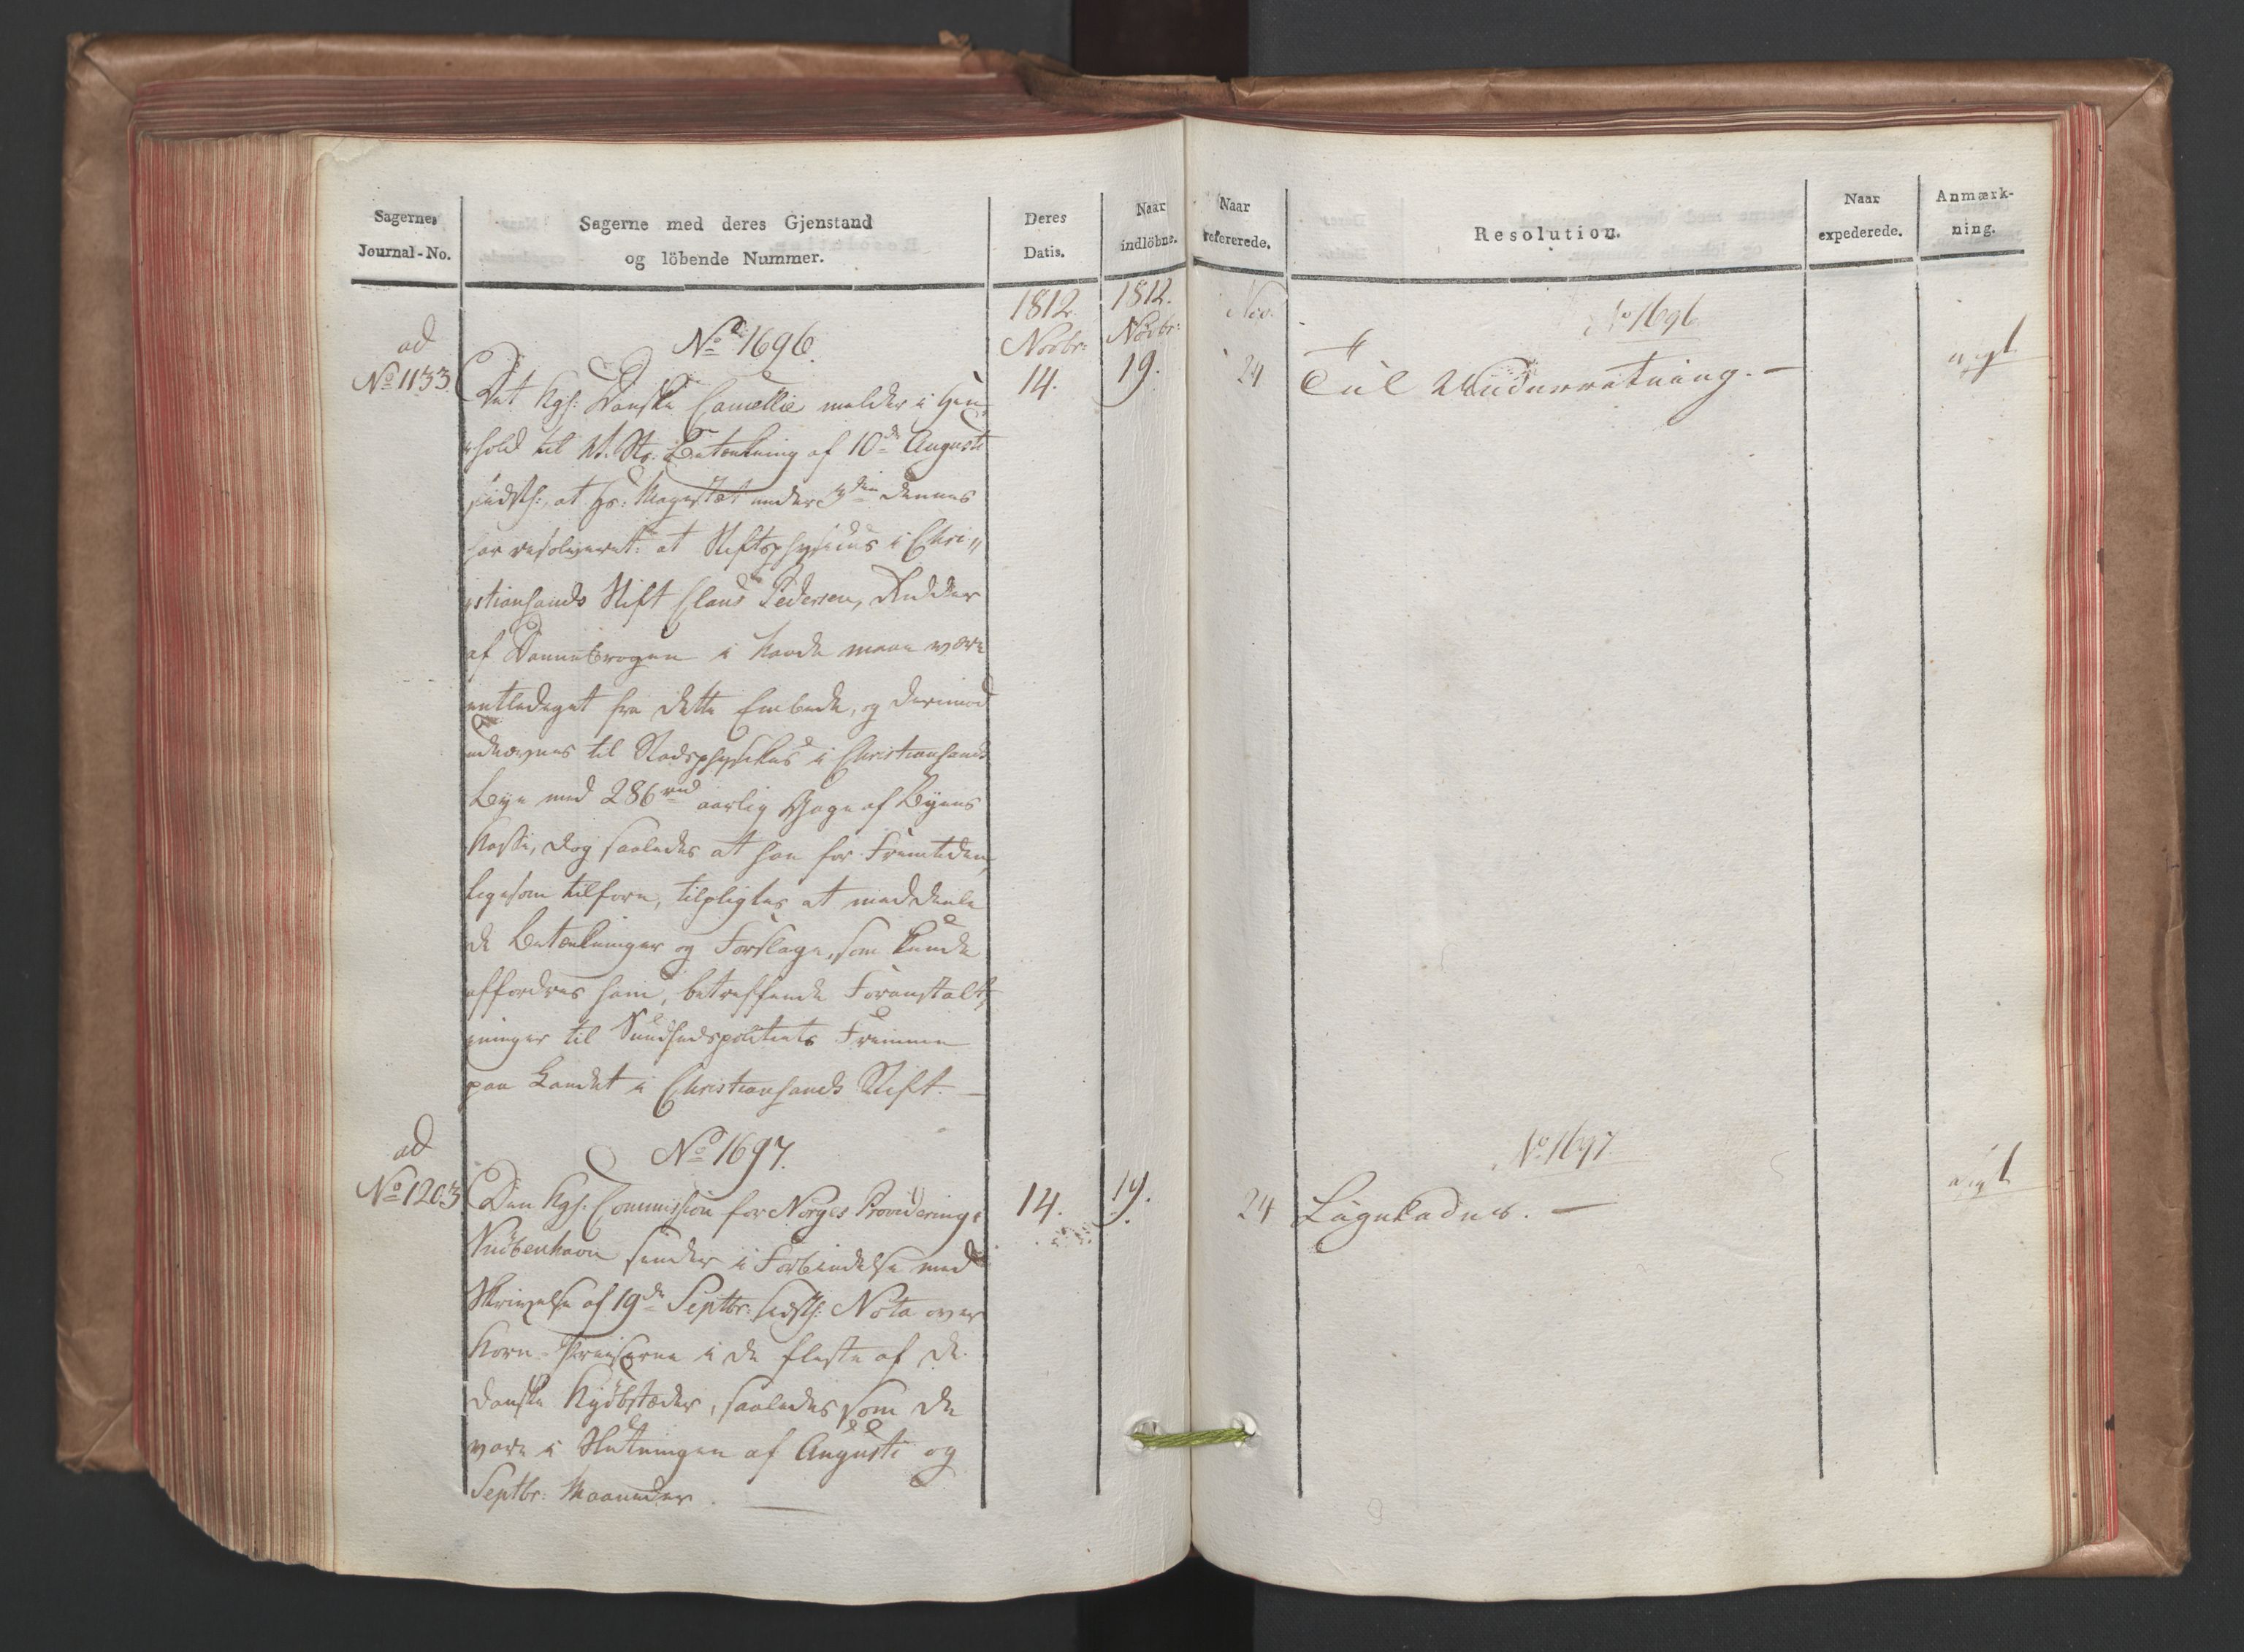 Sagernes
Journal-No.
Sagerne med deres Gjenstand
og löbende Nummer.
Deres
Datis.
Naar
indlöbne.
ad
No 1133
No 1696.
1812
Novbr:
14.
1812.
Novbr:
19.
Det Kgl: Danske Cancellie melder i Hen-
hold til N. St. Betænkning af 10de Augusti
sidstl:, at Hs: Majestæt under 3die dennes
har resolveret: at Stiftsphysicus i Chri-
stiansands Stift Claus Pedersen, Ridder
af Dannebrogen i Naade maae være
entlediget fra dette Embede, og derimod
udnævnes til Stadsphysikus i Christiansands
Bye med 286 rd aarlig Gage af Byens
Kasse, dog saaledes at han for Fremtiden,
ligesom tilforn, tilpligtes at meddeele
de Betænkninger og Forslage, som kunde
affordres ham, betreffende Foranstalt-
ninger til Sundhedspolitiets Fremme
paa Landet i Christiansands Stift. —
ad
No 1203
No 1697.
Den Kgl: Commission for Norges Providering i
Kiöbenhavn sender i Forbindelse med
Skrivelse af 19de Septbr: sidstl: Nota over
Korn-Priiserne i de fleste af de
danske Kjöbstæder, saaledes som de
vare i Slutningen af Augusti og
Septbr: Maaneder. —
14.
19.
Naar
refererede.
Resolution.
Naar
expederede.
Anmærk-
ning.
Nov.
24
No 1696
Til Underretning. —
No 1697
24
Henlægges. —